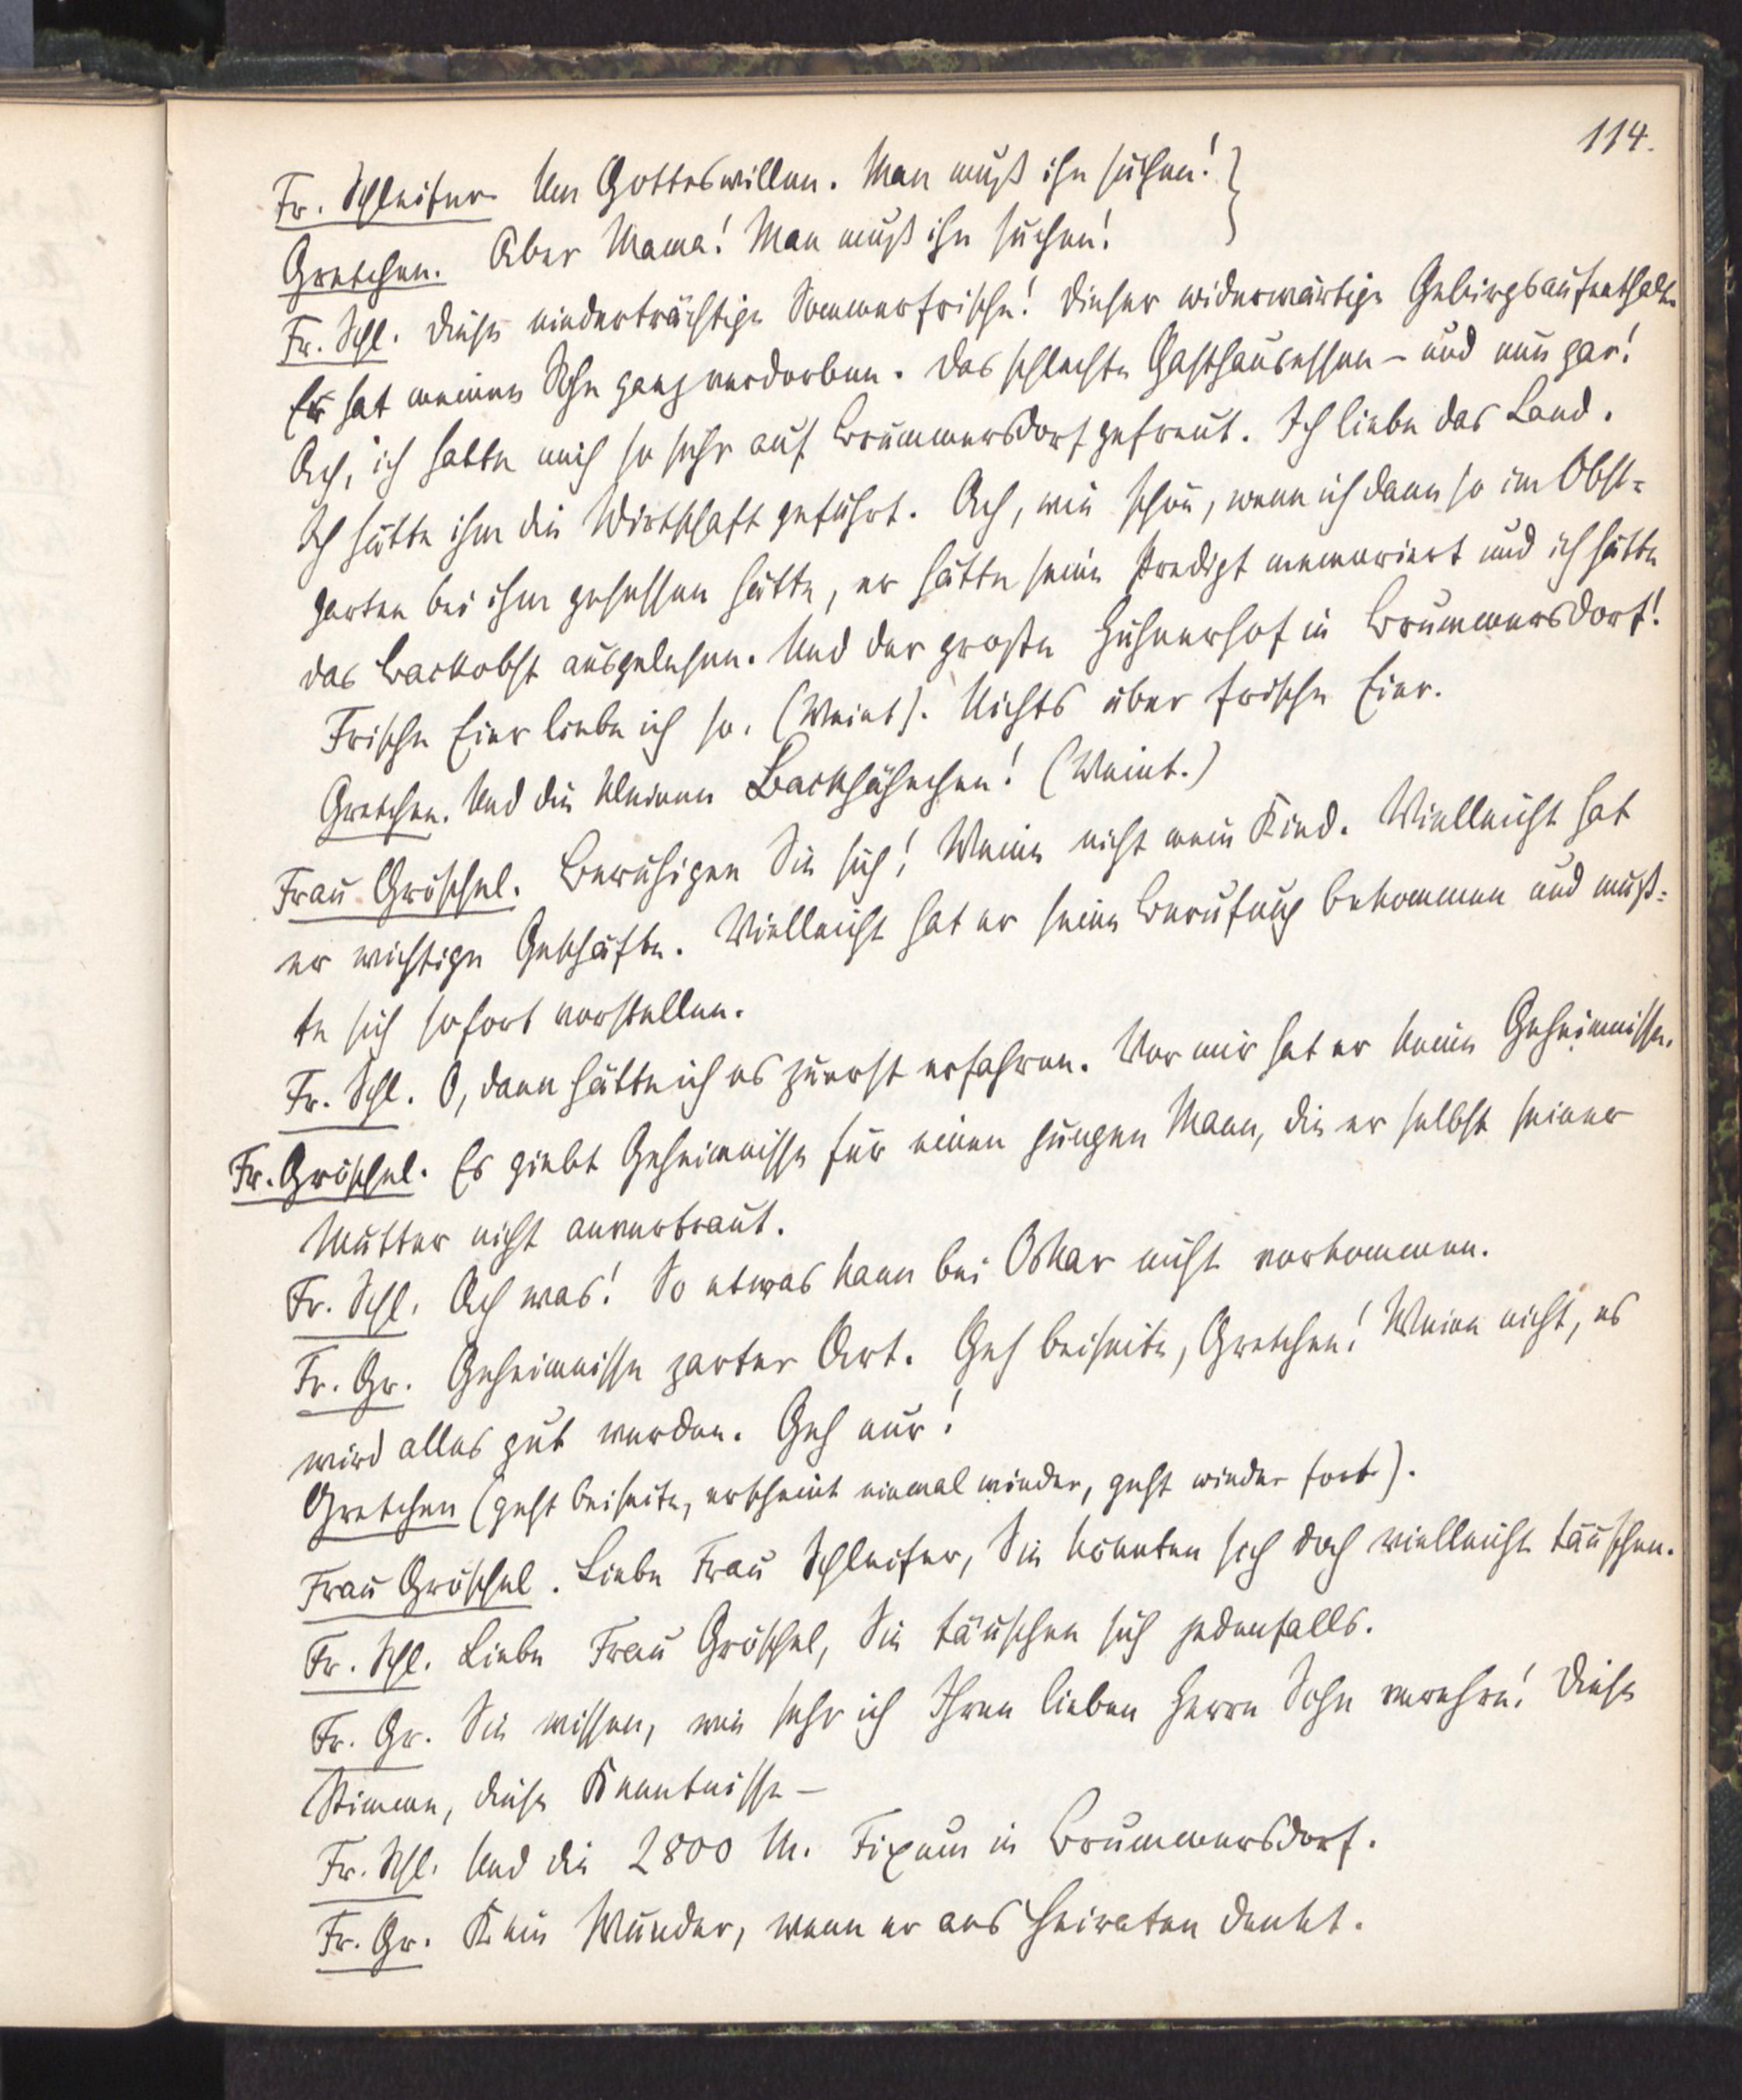 114.
Fr. Schleifer. Um Gotteswillen. Man muß ihn suchen!
Gretchen. Aber Mama! Man muß ihn suchen!
Fr. Schl. Diese niederträchtige Sommerfrische! Dieser widerwärtige Gebirgsaufenthalt
Er hat meinen Sohn ganz verdorben. Das schlechte Gasthausessen – und nun gar!
Ach, ich hatte mich so sehr auf Brummersdorf gefreut. Ich liebe das Land.
Ich hätte ihm die Wirtschaft geführt. Ach, wie schön, wenn ich dann so im Obst-
garten bei ihm gesessen hätte, er hätte seine Predigt memoriert und ich hätte
das Backobst ausgelesen. Und der große Hühnerhof in Brummersdorf!
Frische Eier liebe ich so. (Weint). Nichts über frische Eier.
Gretchen. Und die kleinen Backhähnchen! (Weint.)
Frau Gröschel. Beruhigen Sie sich! Weine nicht mein Kind. Vielleicht hat
er wichtige Geschäfte. Vielleicht hat er seine Berufung bekommen und muß-
te sich sofort vorstellen.
Fr. Schl. O, dann hätte ich es zuerst erfahren. Vor mir hat er keine Geheimnisse.
Fr. Gröschel. Es giebt Geheimnisse für einen jungen Mann, die er selbst seiner
Mutter nicht anvertraut.
Fr. Schl. Ach was! So etwas kann bei Oskar nicht vorkommen.
Fr. Gr. Geheimnisse zarter Art. Geh beiseite, Gretchen! Weine nicht, es
wird alles gut werden. Geh nur!
Gretchen (geht beiseite, erscheint einmal wieder, geht wieder fort).
Frau Gröschel. Liebe Frau Schleifer, Sie könnten sich doch vielleicht täuschen.
Fr. Schl. Liebe Frau Gröschel, Sie täuschen sich jedenfalls.
Fr. Gr. Sie wissen, wie sehr ich Ihren lieben Herrn Sohn verehre! Diese
Stimme, diese Kenntnisse –
Fr. Schl. Und die 2800 M. Fixum in Brummersdorf.
Fr. Gr. Kein Wunder, wenn er ans Heiraten denkt.